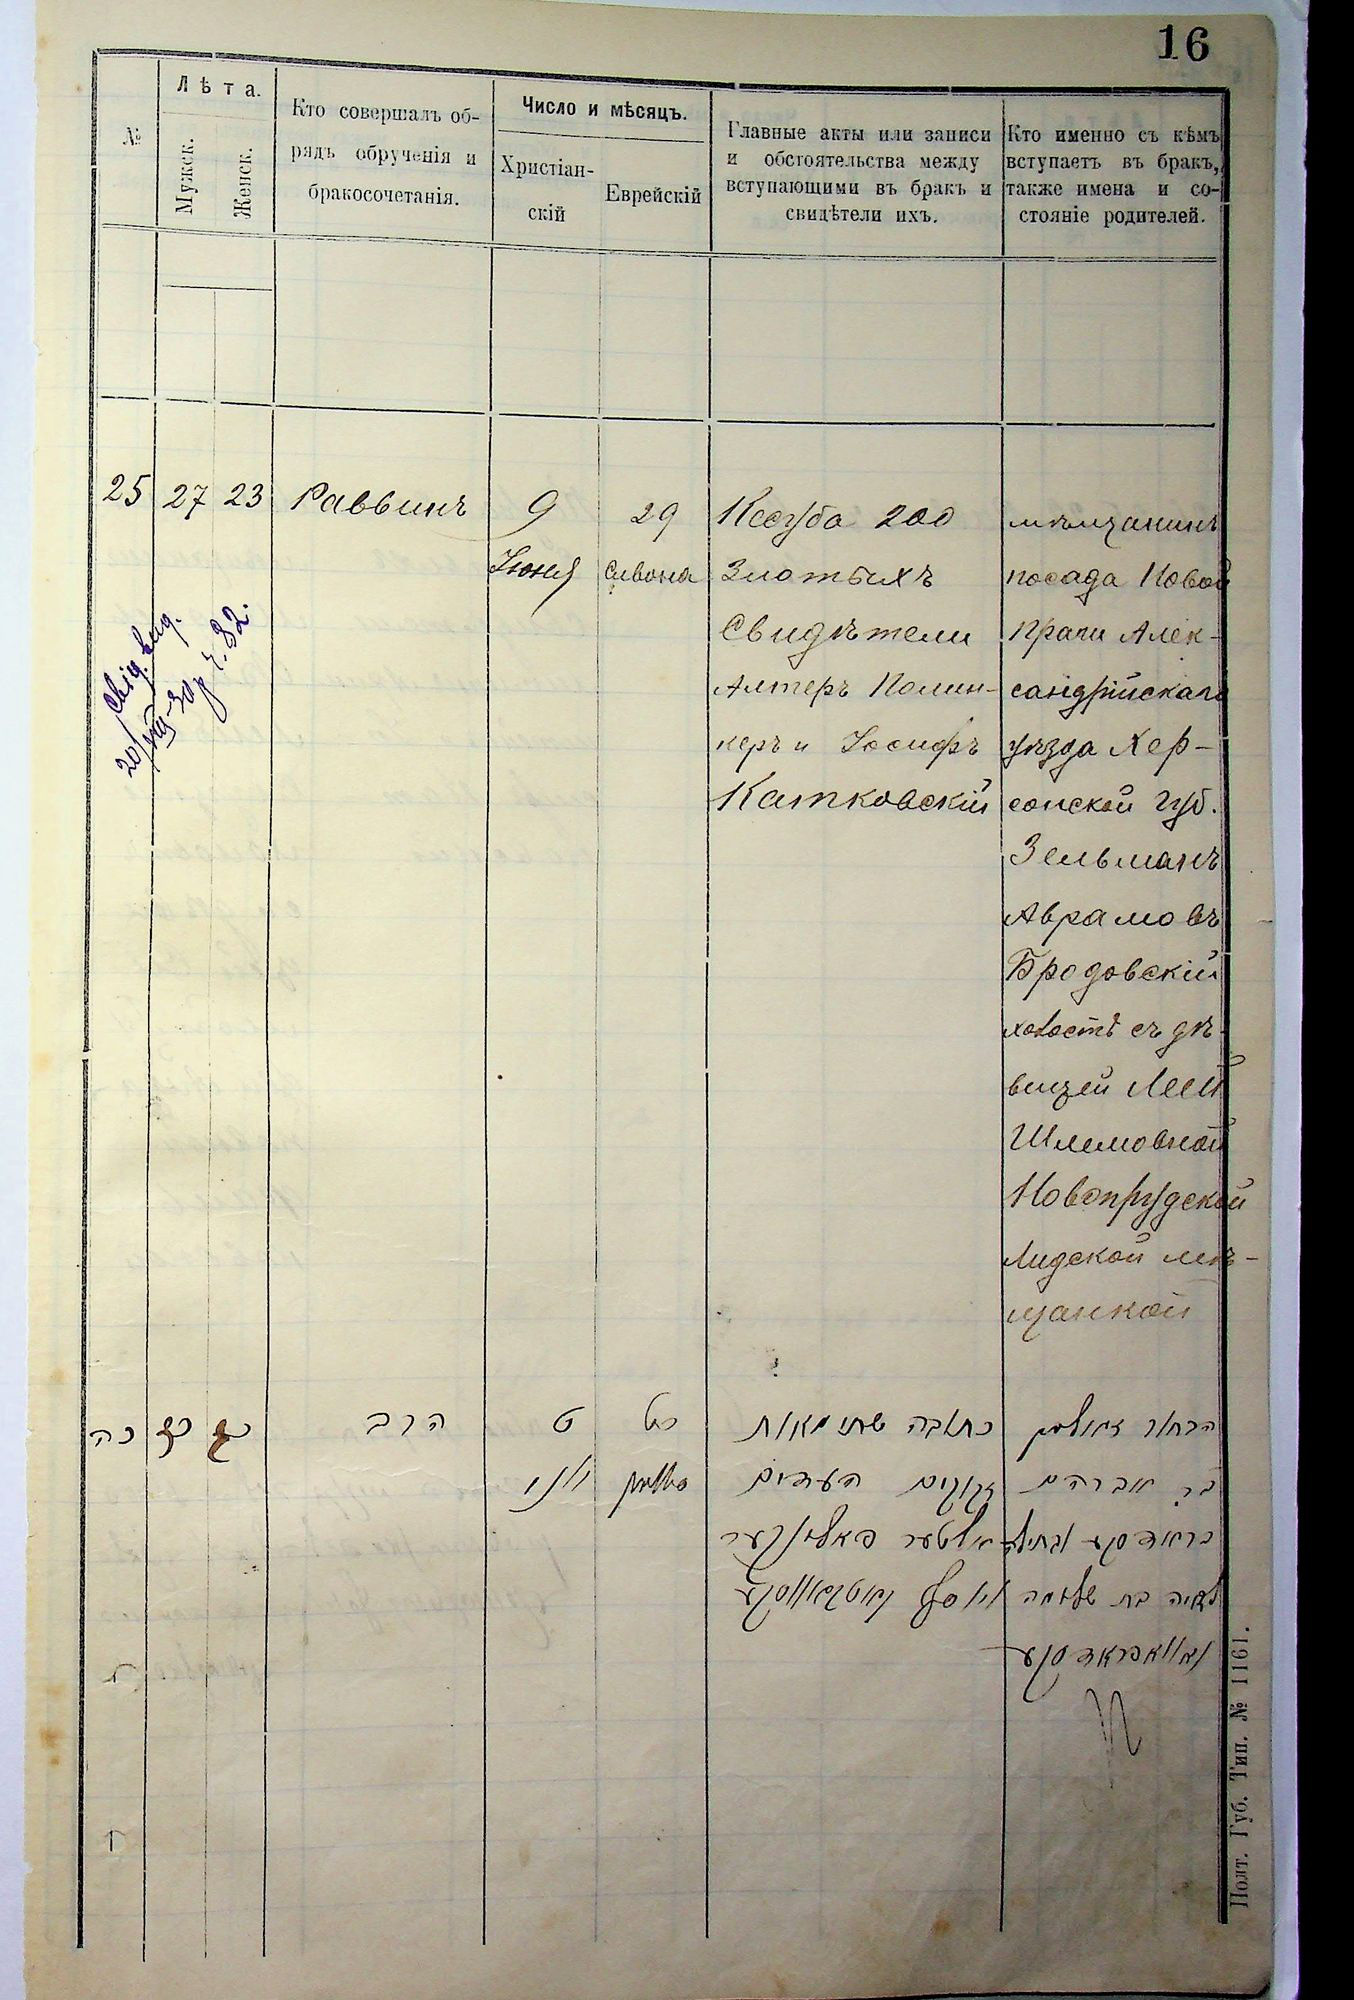 16
№
Лѣта.
Мужск.
Женск.
Кто совершалъ об-
рядъ обрученія и
бракосочетанія.
Число и мѣсяцъ.
Христіан-
скій
Еврейскій
Главные акты или записи
и обстоятельства между
вступающими въ бракъ и
свидѣтели ихъ.
Кто именно съ кѣмъ
вступаетъ въ бракъ,
также имена и со-
стояніе родителей.
25
27
23
Раввинъ
9
Іюня
29
Сивона
Кесуба 200
Злотыхъ
Свидѣтели
Алтеръ Полин-
керъ и Іосифъ
Катковскій
мѣщанинъ
посада Новой
Праги Алек-
сандрійскаго
уѣзда Хер-
сонской губ.
Зельманъ
Аврамовъ
Бродовскій
холостъ съ дѣ-
вицей Леей
Шлемовной
Новопрудской
Лидской мѣ-
щанкой
20/VIII-30
כה
כז
כג
הרב
ט
יוני
כט
כתובה שתי מאות
זקוקים העדים
אלטער פאלינקער
הבחור זאלמן
בר אברהם
לאה בת שלמה
Полт. Губ. Тип. № 1161.